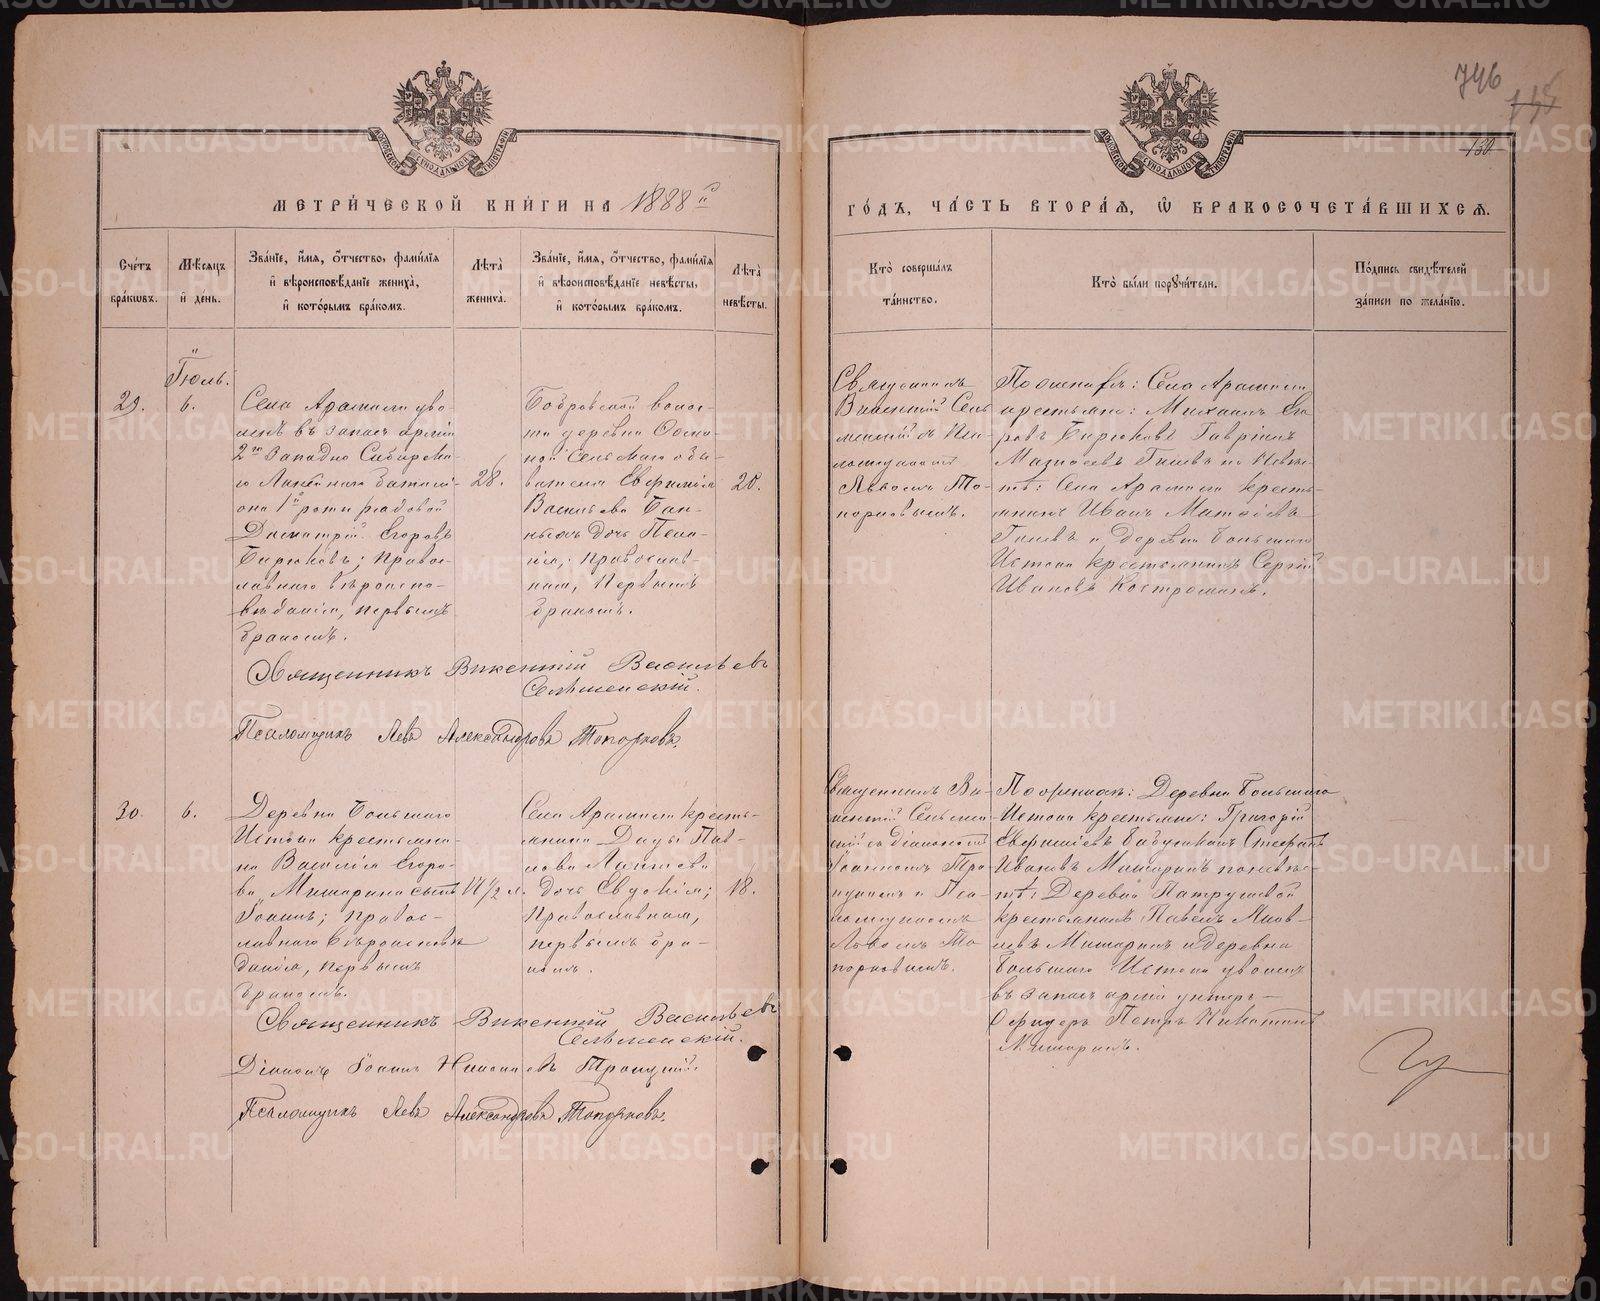 746
130
МЕТРИ́ЧЕСКОЙ КНИ́ГИ НА 1888й
ГО́ДЪ, ЧА́СТЬ ВТОРА́Я, Ѡ БРАКОСОЧЕТА́ВШИХСЯ.
Сче́тъ бра́кωвъ.
Мѣ́сяцъ и де́нь.
Зва́нїе, и́мя, о́тчество, фами́лїя
и вѣроисповѣ́данїе жениха̀,
и кото́рымъ бра́комъ.
Лѣта̀ жениха̀.
Зва́нїе, и́мя, о́тчество, фами́лїя
и вѣроисповѣ́данїе невѣ́сты,
и кото́рымъ бра́комъ.
Лѣта̀ невѣ́сты.
Кто̀ соверша́лъ
та́инство.
Кто̀ бы́ли порꙋчи́тели.
По́дпись свидѣ́телей
за́писи по жела́нїю.
Іюль.
29.
6.
Села Арамили уво-
лен. въ запас армiи
2го Западно Сибирска-
го Линейнаго баталi-
она 1й роты рядовой
Димитрiй Егоровъ
Бирюковъ; Правос-
лавнаго вѣроиспо-
вѣданiя, первымъ
бракомъ.
28.
Бобровской волос-
ти деревни Осми-
ной Сельскаго обы-
вателя Евфимiя
Васильева
дочь Пела-
гiя; православ-
ная, первымъ
бракомъ.
20.
Священникъ
Викентiй Сель-
менскiй съ Пса-
ломщикомъ
Львомъ То-
порковымъ.
По женихѣ: Села Арамили
крестьяне: Михаилъ Его-
ровъ Бирюковъ Гаврiилъ
по невѣс-
тѣ: Села Арамили кресть-
янинъ Иванъ Матвѣевъ
и деревни Большаго
Истока крестьянинъ Сергiй
Ивановъ Костроминъ.
Священникъ Викентiй Васильевъ
Сельменскiй.
Псаломщикъ Левъ Александровъ Топорковъ.
30.
6.
Деревни Большаго
Истока крестьяни-
на Василiя Егоро-
ва Мишарина сынъ
Iоаннъ; Правос-
лавнаго Вѣроисповѣ-
данiя, первымъ
бракомъ.
17 1/2 л.
Села Арамили кресть-
янина Давыда Пав-
лова Лаптева
дочь Евдокiя;
Православная,
первымъ бра-
комъ.
18.
Священникъ Ви-
кентiй Сельмен-
скiй съ дiакономъ
Iоанномъ Тро-
ицкимъ и Пса-
ломщикомъ
Львомъ То-
порковымъ.
По женихѣ: Деревни Большаго
Истока крестьяне: Григорiй
Евфимiевъ Бабушкинъ Стефанъ
Ивановъ Мишаринъ по невѣс-
тѣ: Деревни Патрушевой
крестьянинъ Павелъ Яков-
левъ Мишаринъ и Деревни
Большаго Истока уволен.
въ запас армiи унтеръ-
Офицеръ Петръ
Мишаринъ.
Священникъ Викентiй Васильевъ
Сельменскiй.
Дiаконъ Iоаннъ Николаевъ Троицкiй.
Псаломщикъ Левъ Александровъ Топорковъ.